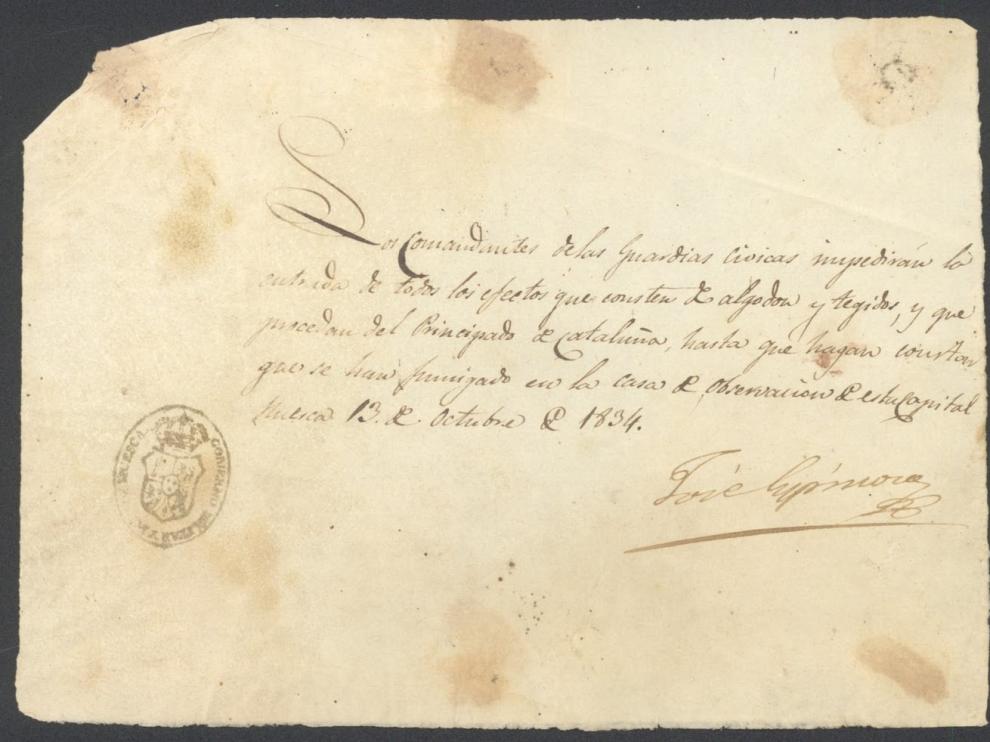 Los Comandantes de las Guardias Civicas impedirán la
entrada de todos los efectos que consten de algodon y tegidos, y que
procedan del Principado de Cataluña, hasta que hagan constar
que se han fumigado en la casa de observacion de esta Capital
Huesca 13. de Octubre de 1834.
José Espinosa
GOBIERNO MILITAR Y P
HUESCA